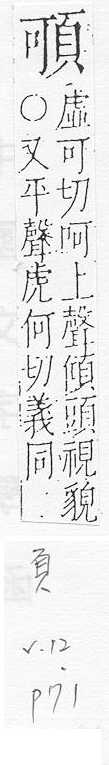 虛可切呵上聲傾頭視貌
○又平聲虎何切義同
頁
v.12.
p71